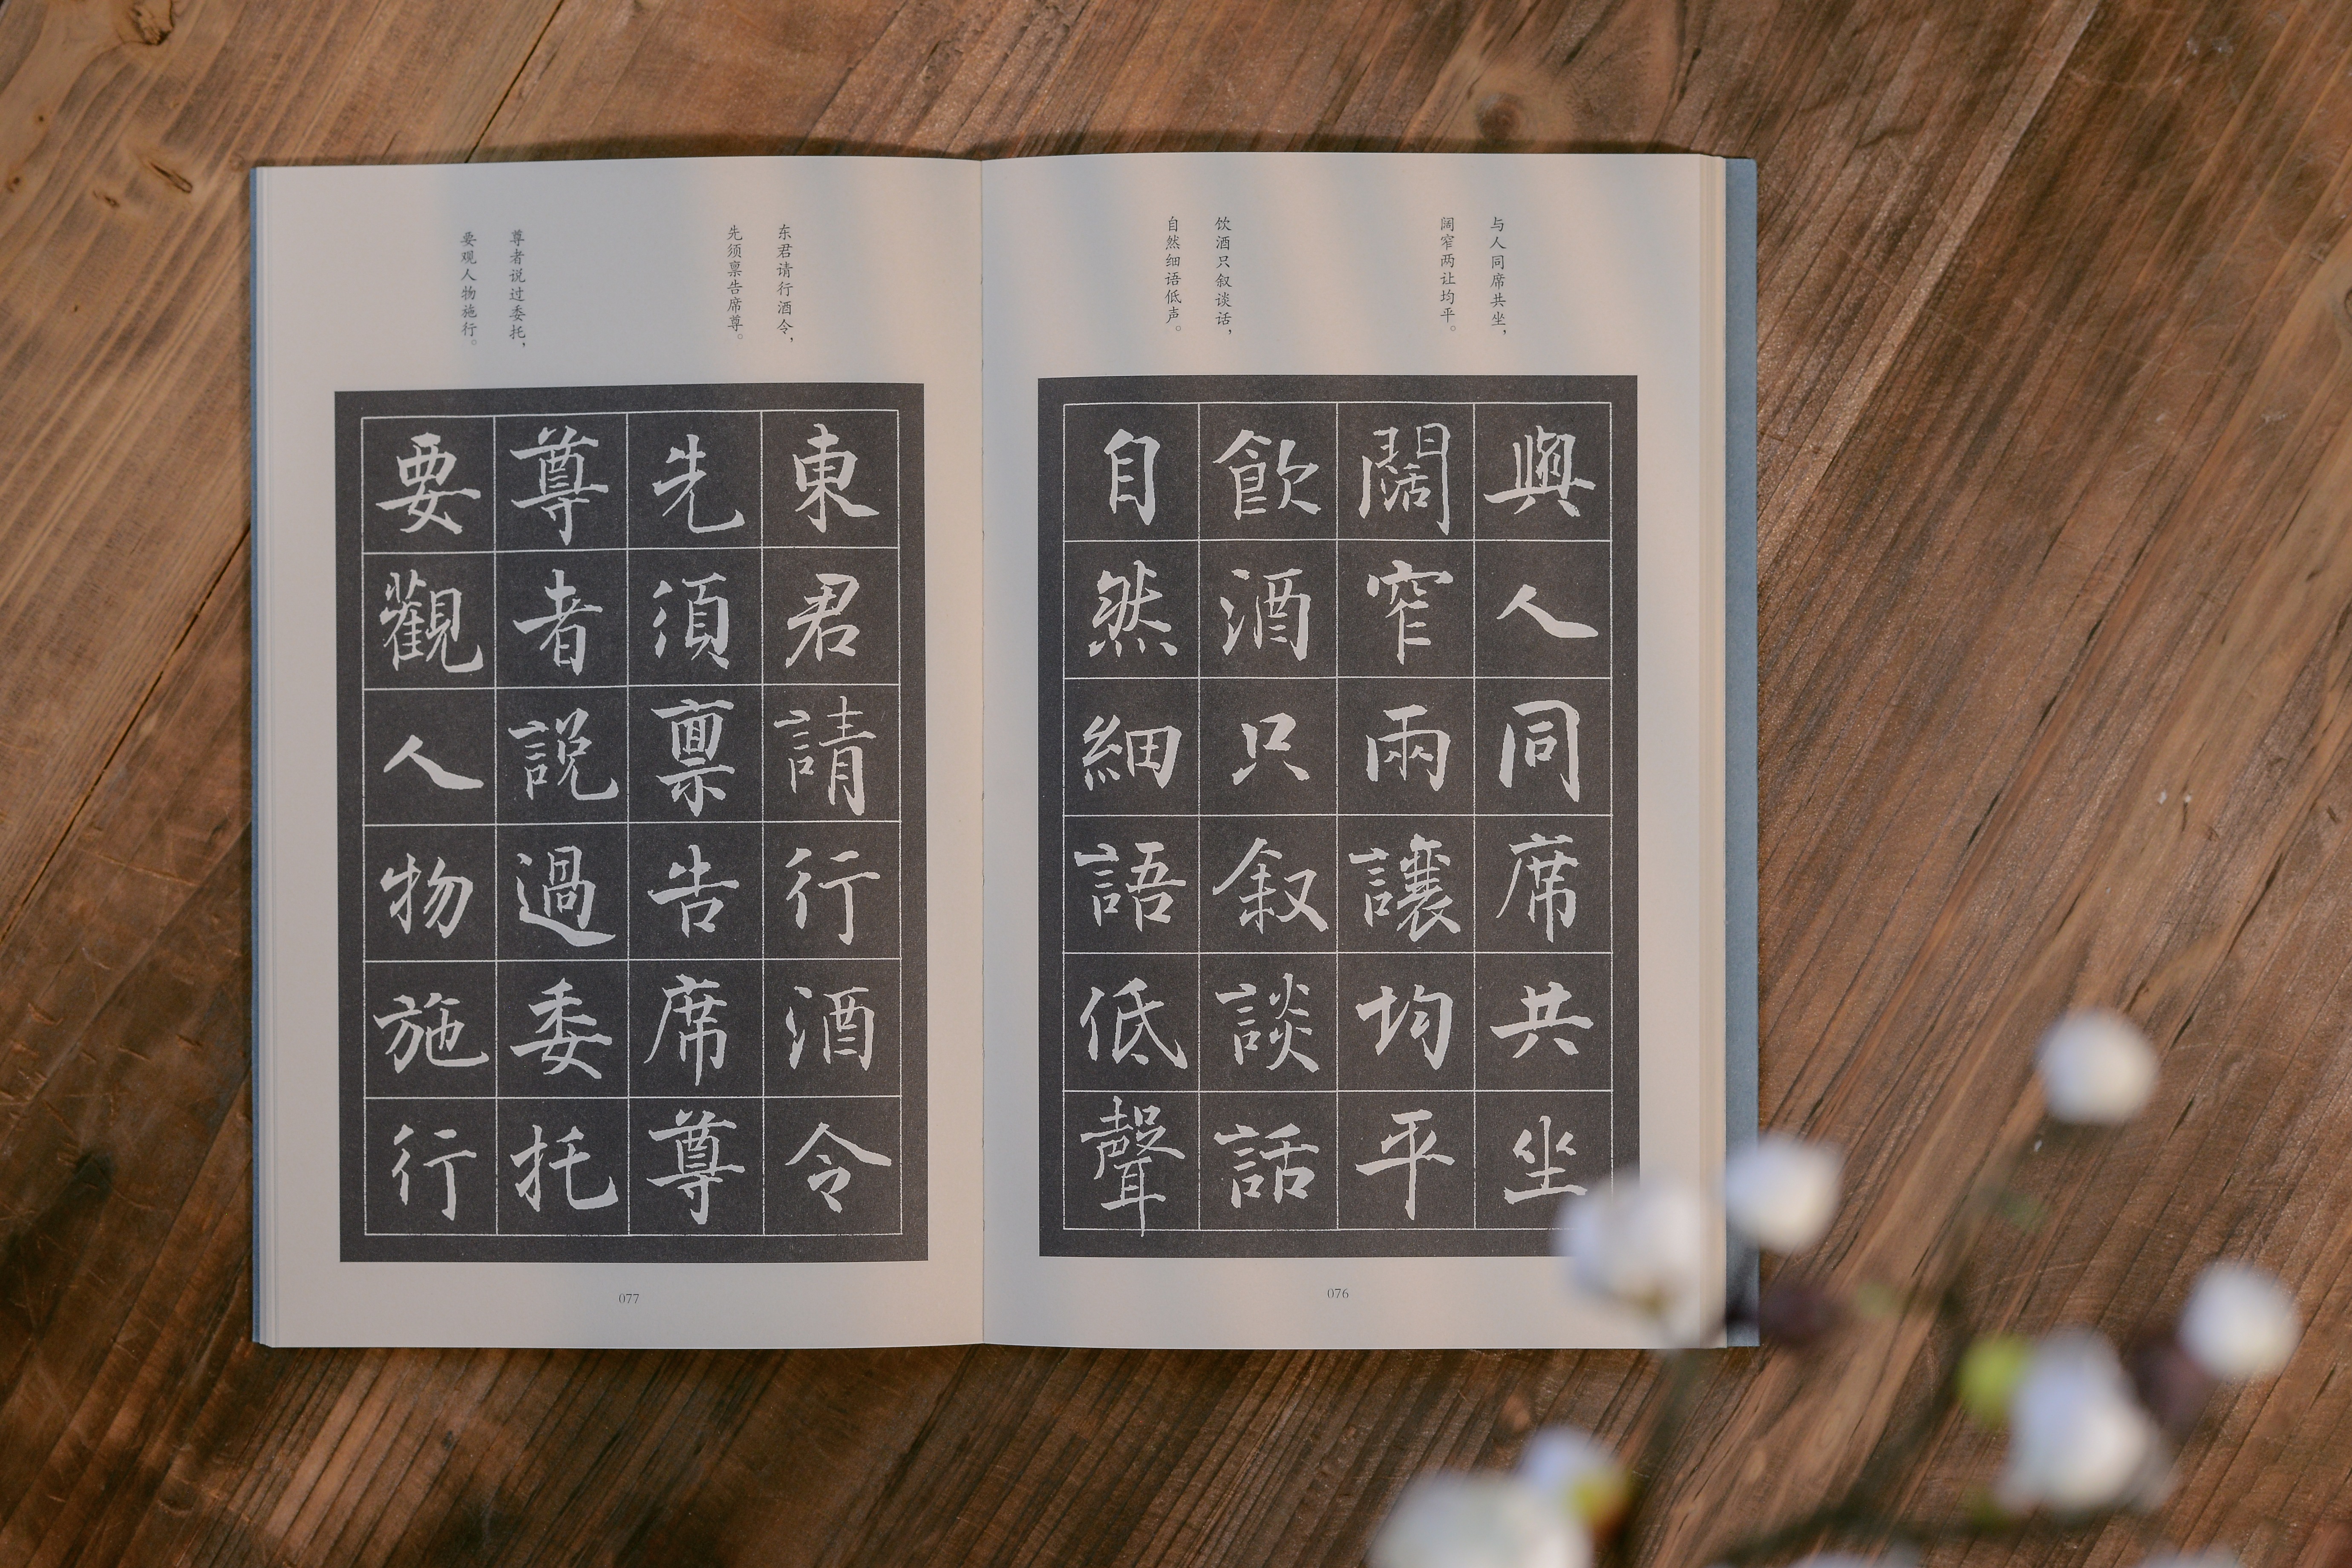 与人同席共坐，
阔窄两让均平。
饮酒只叙谈话，
自然细语低声。
與人同席共坐
闊窄兩讓均平
飲酒只叙談話
自然細語低聲
076
东君请行酒令，
先须禀告席尊。
尊者说过委托，
要观人物施行。
東君請行酒令
先須禀告席尊
尊者説過委托
要觀人物施行
077